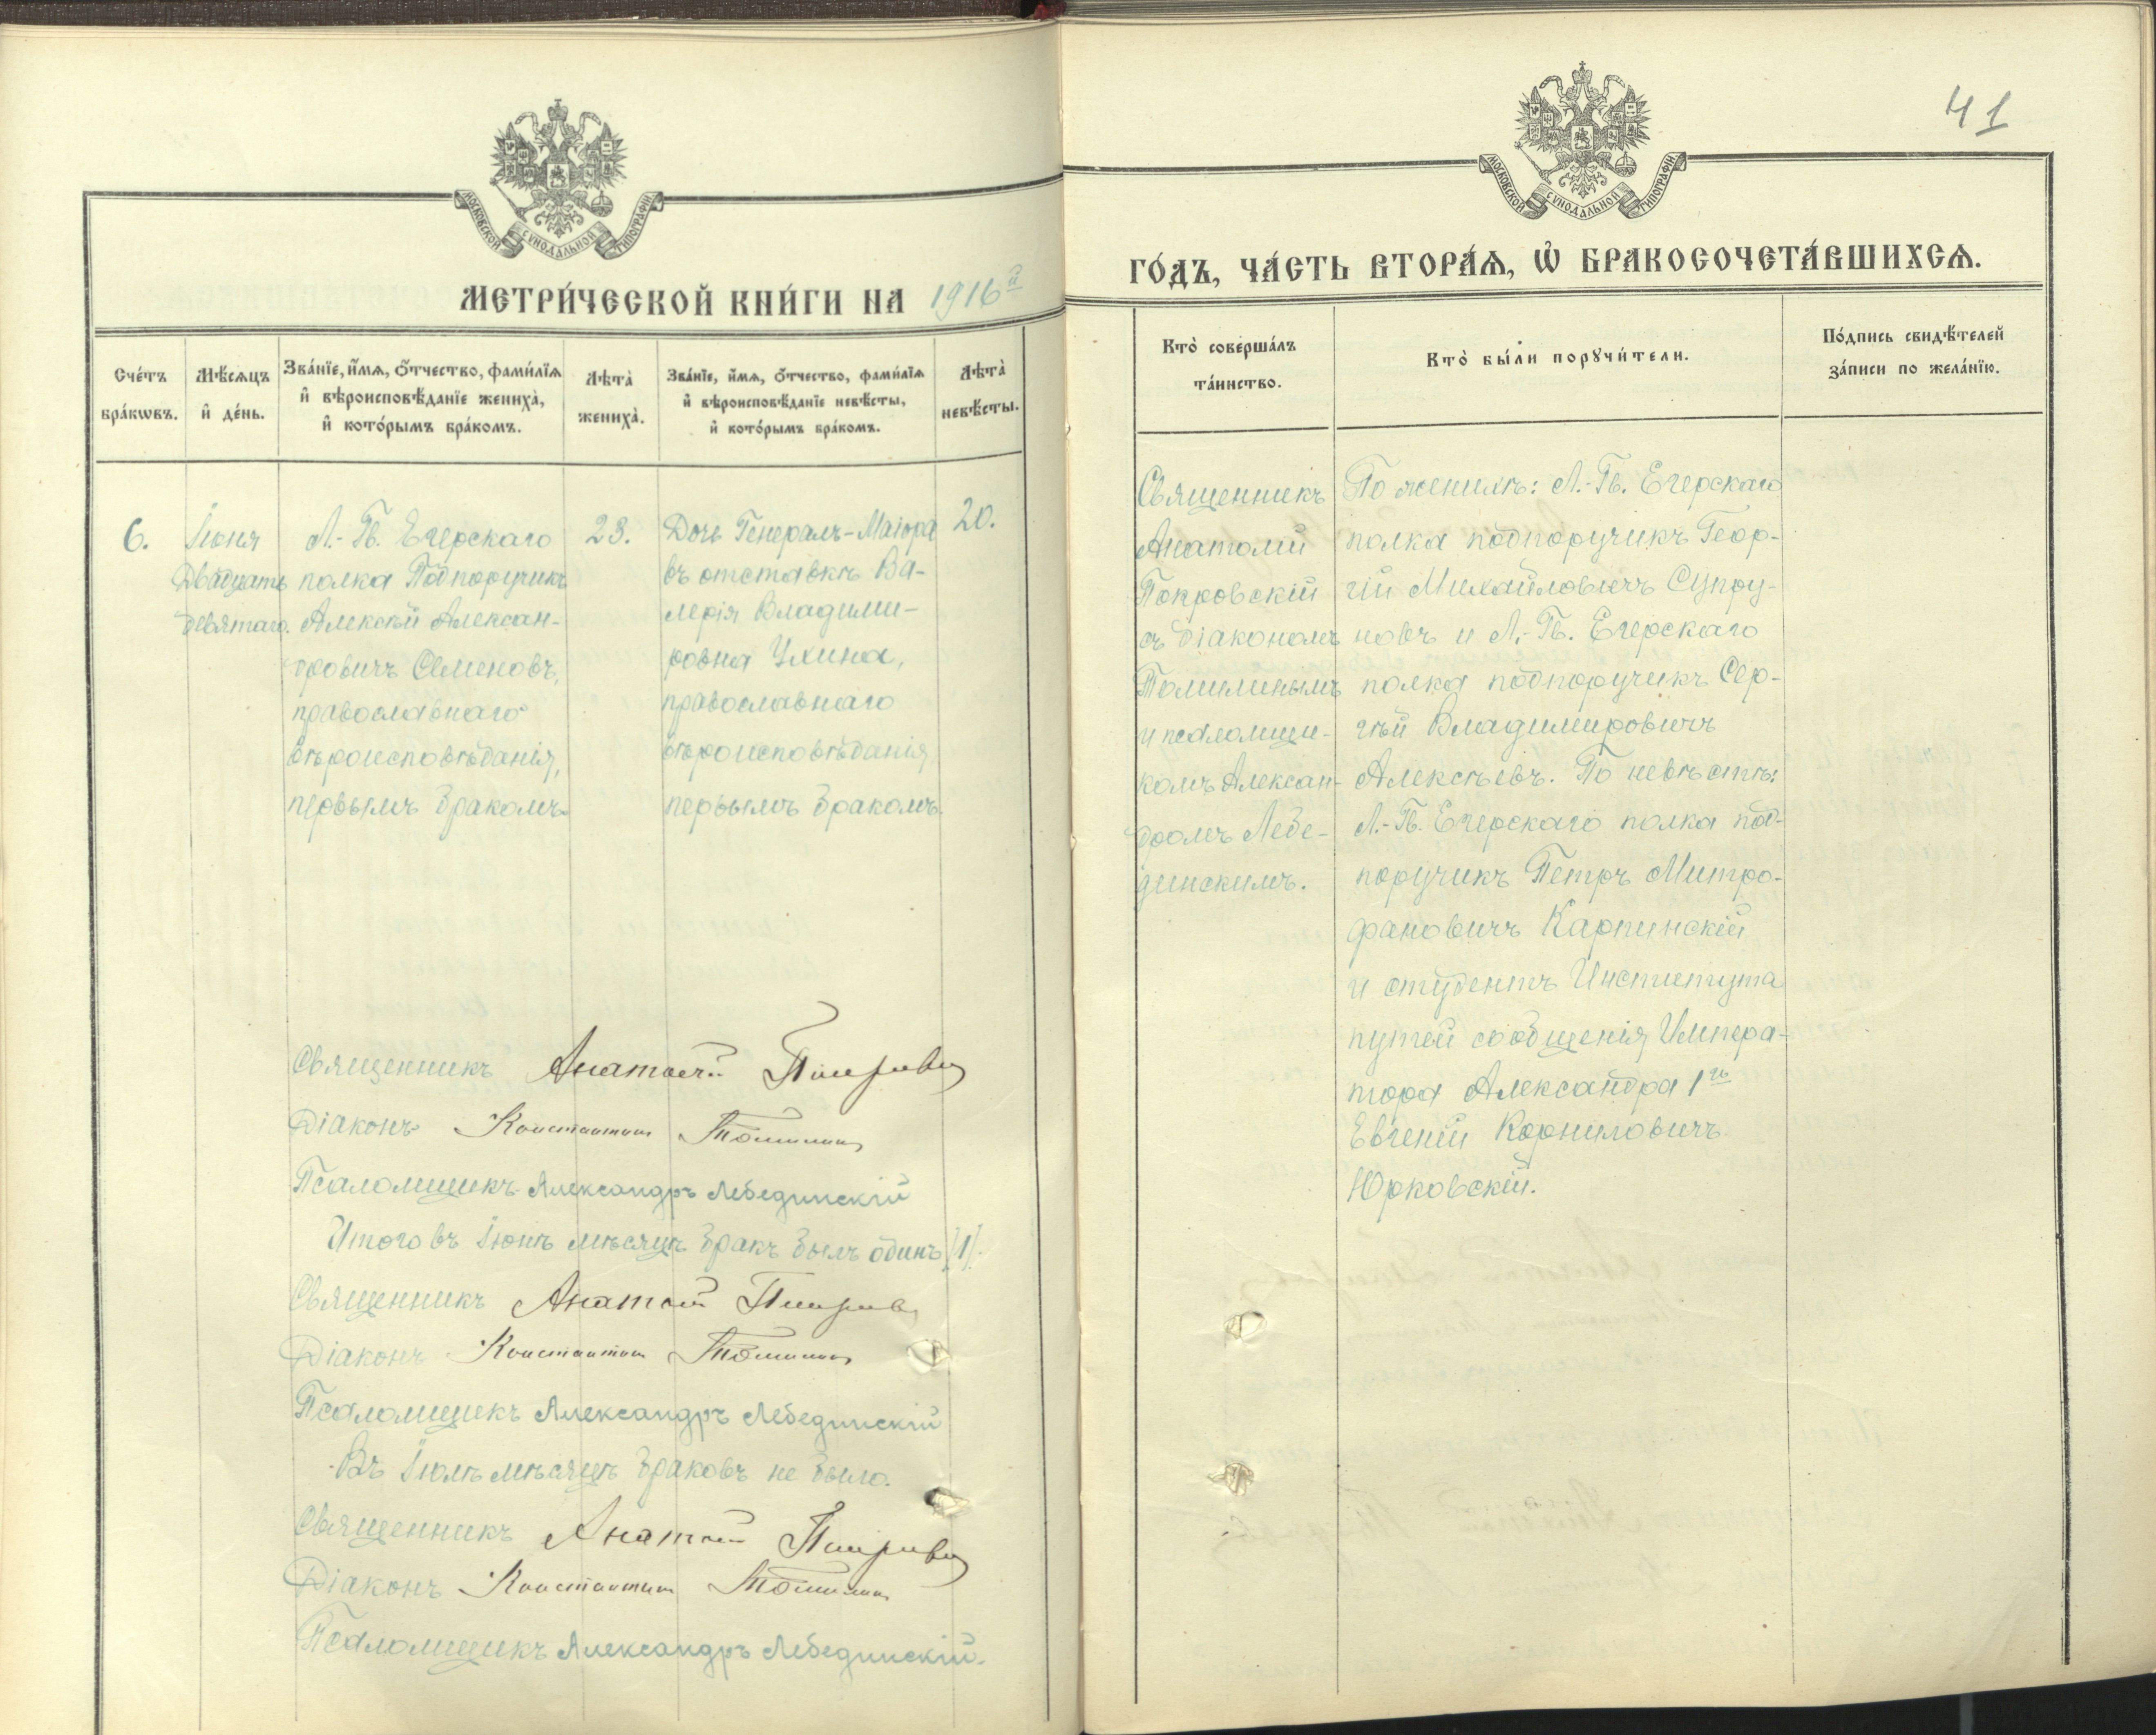 41
МОСКОВСКОЙ СѴНОДАЛЬНОЙ ТИПОГРАФІИ
МОСКОВСКОЙ СѴНОДАЛЬНОЙ ТИПОГРАФІИ
МЕТРИ́ЧЕСКОЙ КНИ́ГИ НА 1916й
ГО́ДЪ, ЧА́СТЬ ВТОРА́Ѧ, Ѡ҆ БРАКОСОЧЕТА́ВШИХСѦ.
Сче́тъ
бра́кѡвъ.
Мѣ́сѧцъ
и҆ де́нь.
Зва́нїе, и҆́мѧ, ѻ҆́тчество, фами́лїѧ
и҆ вѣроисповѣ́данїе жениха̀,
и҆ кото́рымъ бра́комъ.
Лѣта̀
жениха̀.
Зва́нїе, и҆́мѧ, ѻ҆́тчество, фами́лїѧ
и҆ вѣроисповѣ́данїе невѣ́сты,
и҆ кото́рымъ бра́комъ.
Лѣта̀
невѣ́сты.
Кто̀ соверша́лъ
та́инство.
Кто̀ бы́ли порꙋчи́тели.
По́дпись свидѣ́телей
за́писи по жела́нїю.
6.
Іюня
Двадцать
девятаго.
Л.-Гв. Егерскаго
полка Подпоручикъ
Алексѣй Алексан-
дровичъ Семеновъ,
православнаго
вѣроисповѣданія,
первымъ бракомъ.
23.
Дочь Генералъ-Маіора
въ отставкѣ Ва-
лерія Владими-
ровна Ухина,
православнаго
вѣроисповѣданія
первымъ бракомъ.
20.
Священникъ
Анатолій
Покровскій
съ діакономъ
Томилинымъ
и псаломщи-
комъ Алексан-
дромъ Лебе-
динскимъ.
По женихѣ: Л.-Гв. Егерскаго
полка подпоручикъ Геор-
гій Михайловичъ Супру-
новъ и Л.-Гв. Егерскаго
полка подпоручикъ Сер-
гѣй Владимировичъ
Алексѣевъ. По невѣстѣ:
Л.-Гв. Егерскаго полка под-
поручикъ Петръ Митро-
фановичъ Карпинскій
и студентъ Института
путей сообщенія Импера-
тора Александра 1го
Евгеній Корниловичъ
Юрковскій.
Священникъ Анатолій Покровскій
Діаконъ Константинъ Томилинъ
Псаломщикъ Александръ Лебединскій
Итого въ Іюнѣ мѣсяцѣ бракъ былъ одинъ /1/.
Священникъ Анатолій Покровскій
Діаконъ Константинъ Томилинъ
Псаломщикъ Александръ Лебединскій
Въ Іюлѣ мѣсяцѣ браковъ не было.
Священникъ Анатолій Покровскій
Діаконъ Константинъ Томилинъ
Псаломщикъ Александръ Лебединскій.